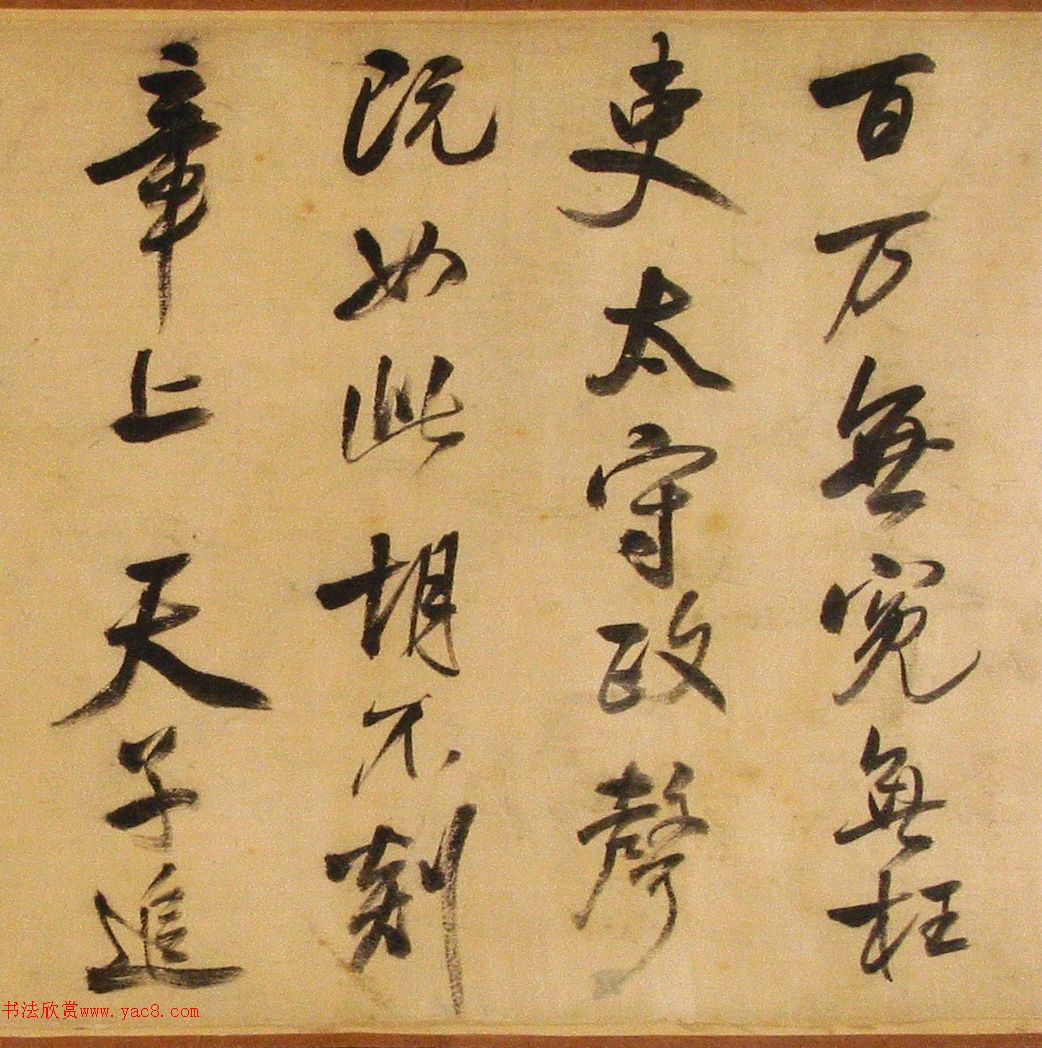 百万無冤無枉
吏太守政聲
既如此胡不剡
章上天子追
书法欣赏www.yac8.com